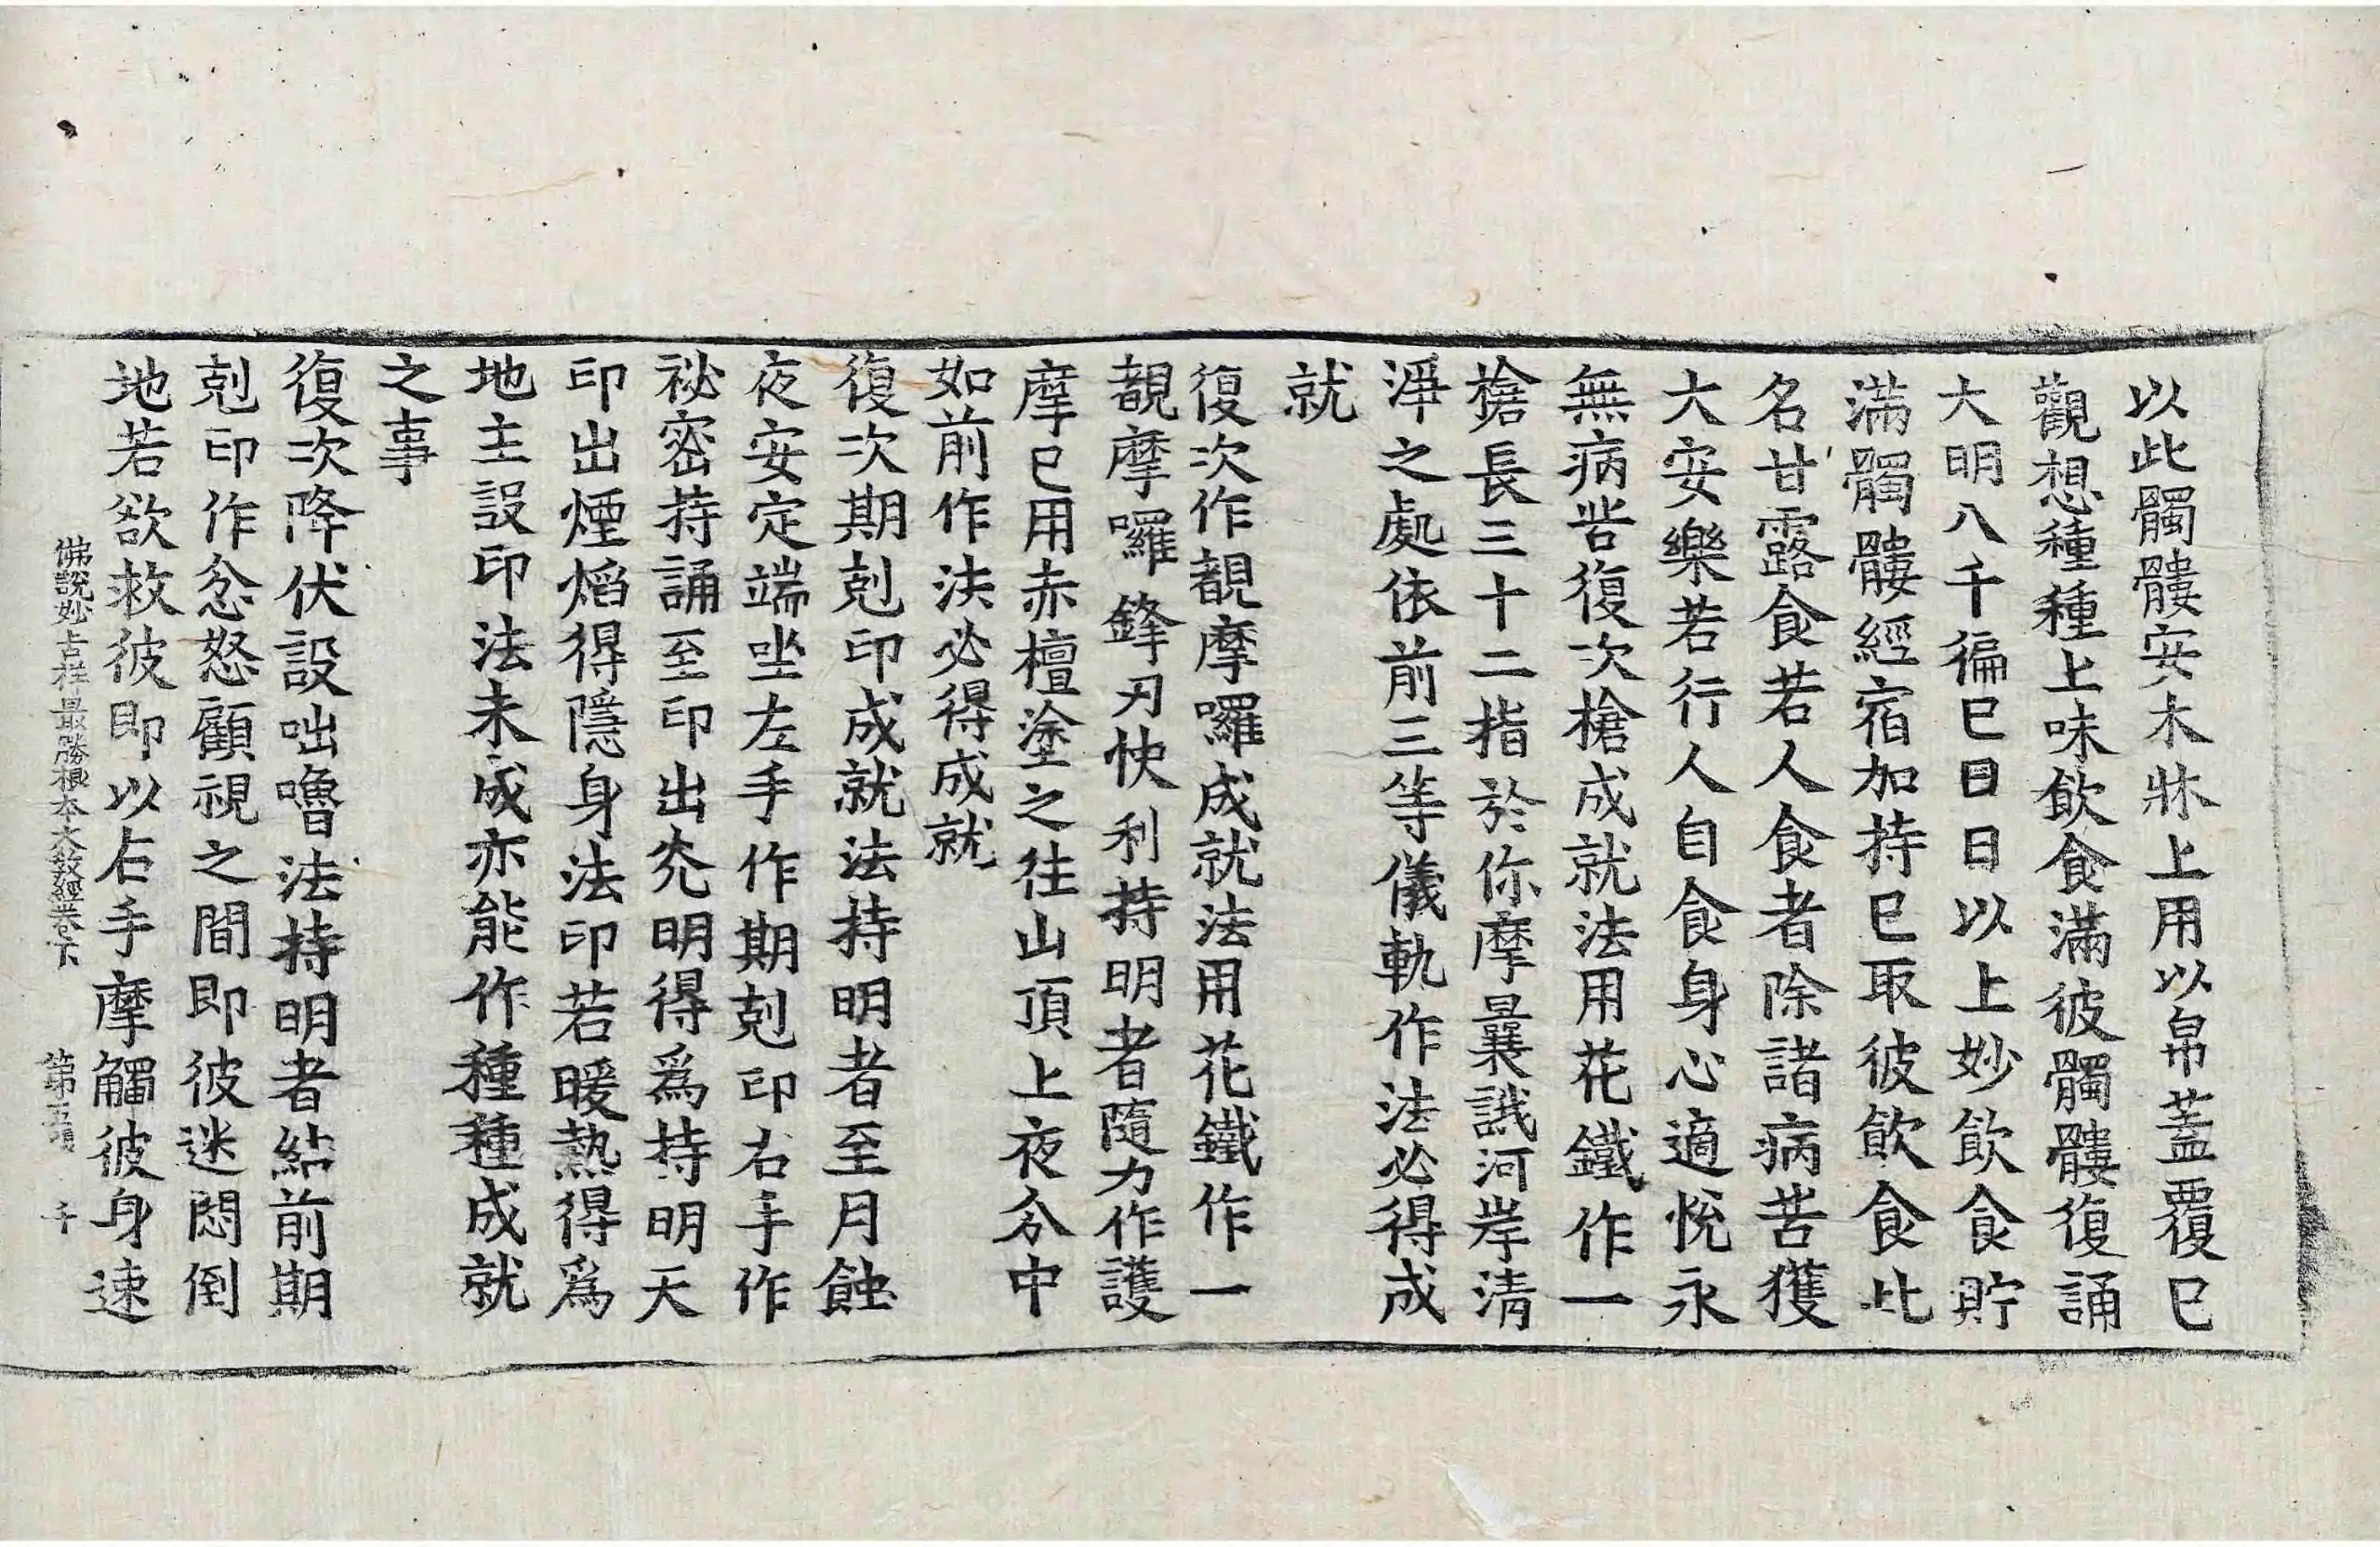 以此髑髏安木牀上用以帛蓋覆已
觀想種種上味飲食滿彼髑髏復誦
大明八千徧已日日以上妙飲食貯
滿髑髏經宿加持已取彼飲食此
名甘露食若人食者除諸病苦獲
大安樂若行人自食身心適悅永
無病苦復次槍成就法用花鐵作一
槍長三十二指於你摩曩誐河岸清
淨之處依前三等儀軌作法必得成
就
復次作覩摩囉成就法用花鐵作一
覩摩囉鋒刃快利持明者隨力作護
摩已用赤檀塗之往山頂上夜分中
如前作法必得成就
復次期剋印成就法持明者至月蝕
夜安定端坐左手作期剋印右手作
祕密持誦至印出光明得為持明天
印出煙焰得隱身法印若暖熱得為
地主設印法未成亦能作種種成就
之事
復次降伏設咄嚕法持明者結前期
剋印作忿怒顧視之間即彼迷悶倒
地若欲救彼即以右手摩觸彼身速
佛說妙吉祥最勝根本大教經卷下 第五張 千